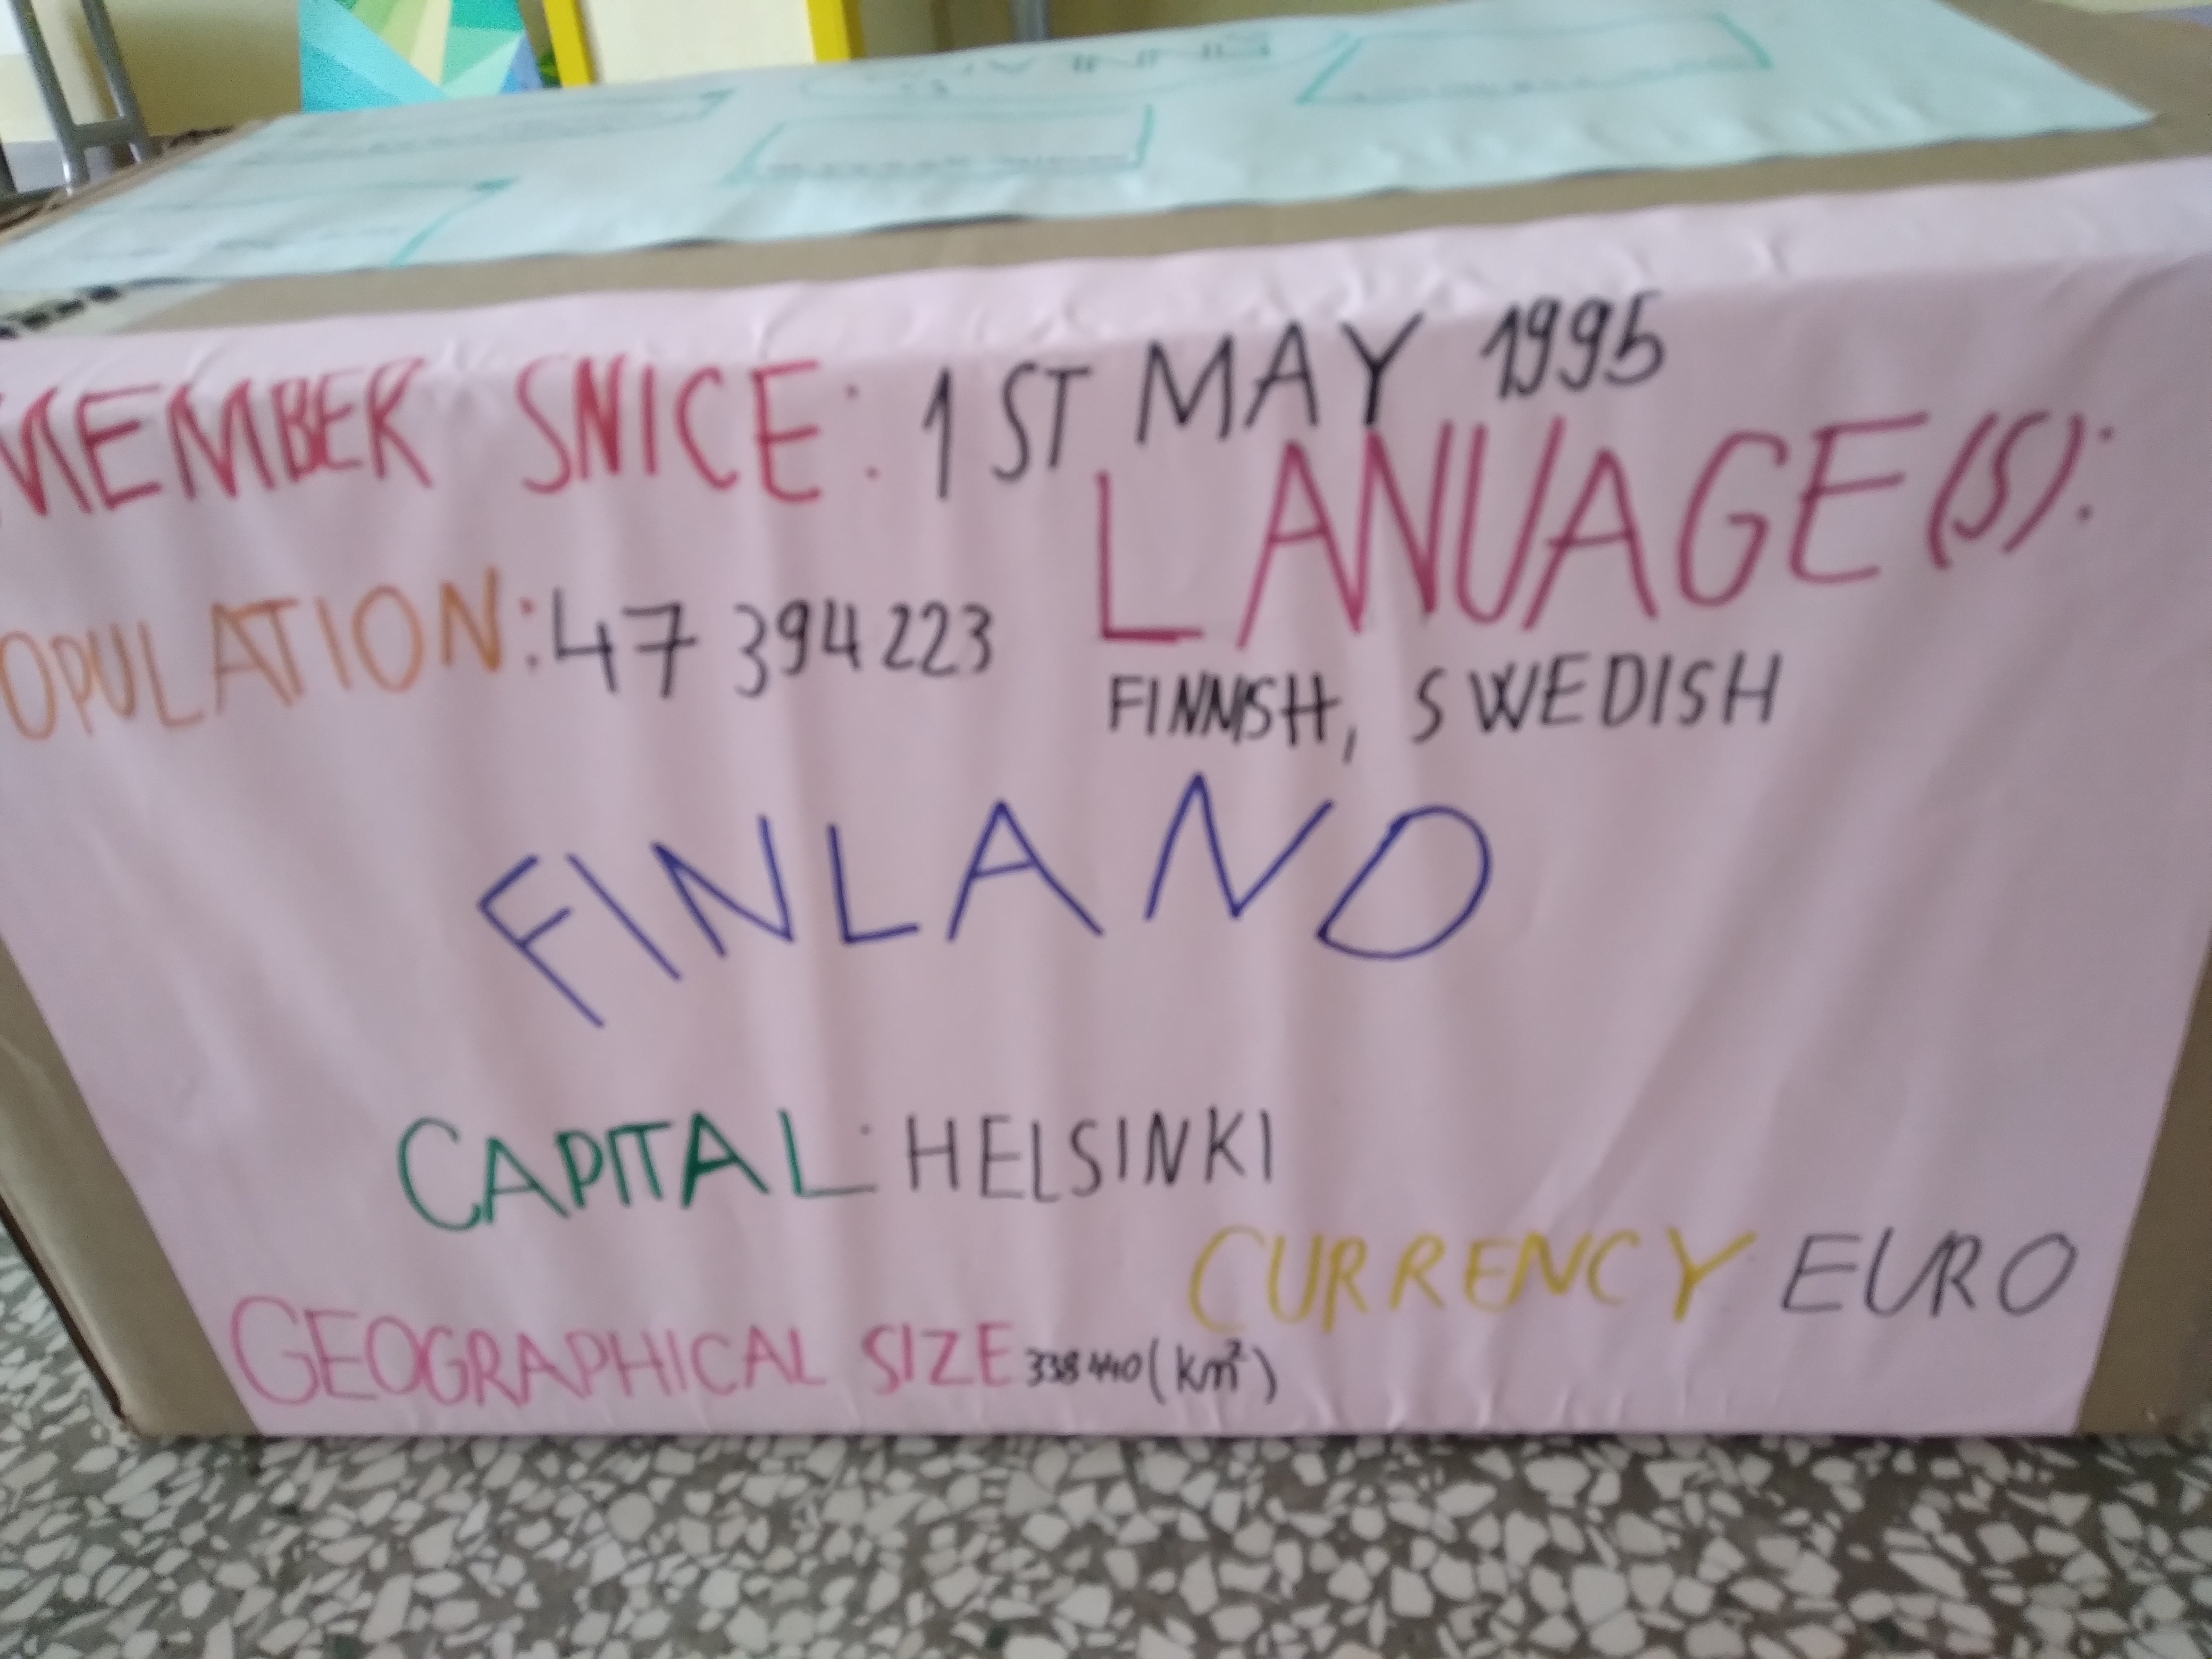 MEMBER SNICE: 1ST MAY 1995
LANUAGE(S):
OPULATION: 47 394 223
FINNISH, SWEDISH
FINLAND
CAPITAL: HELSINKI
CURRENCY EURO
GEOGRAPHICAL SIZE 338 440 (km²)